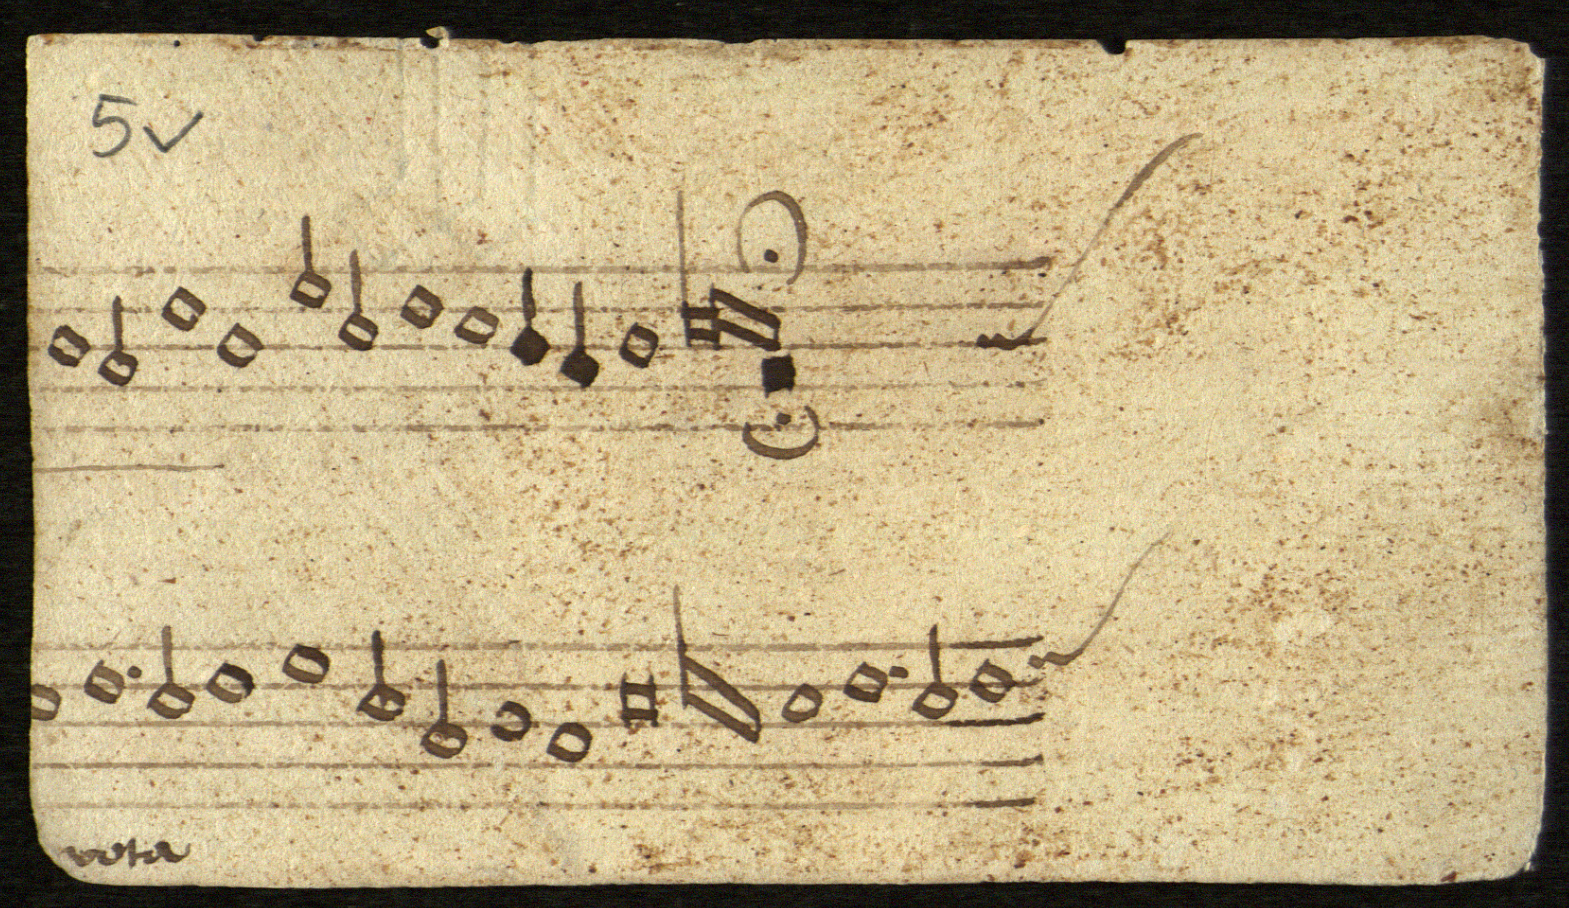 5v
vota